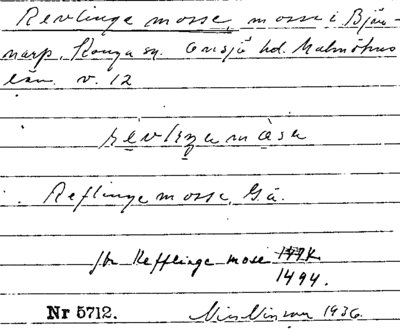 Revlinge mosse, mosse i Bjär-
narp, Konga sn. Onsjö hd. Malmöhus
län. v. 12
Reflinge mosse, G.ä.
jbr Refflinge mose
1494.
Nr 5712. Nils Nilsson 1936.